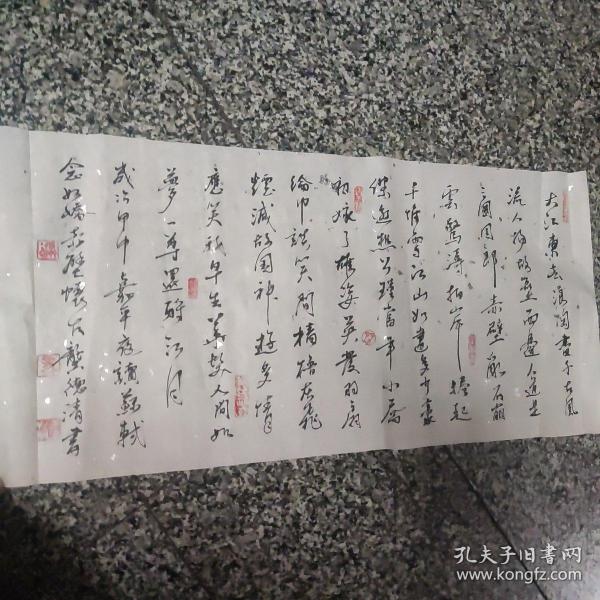 大江東去浪淘盡千古風
流人物故壘西邊人道是
三國周郎赤壁亂石崩
雲驚濤拍岸捲起
千堆雪江山如畫多少豪
傑遙想公瑾當年小喬
初嫁了雄姿英發羽扇
綸巾談笑間檣櫓灰飛
煙滅故国神遊多情
應笑我早生華髮人间如
夢一尊還酹江月
歲次甲申嘉平夜讀蘇軾
念奴嬌赤壁懷古龔德清書
孔夫子旧书网
www.kongfz.com